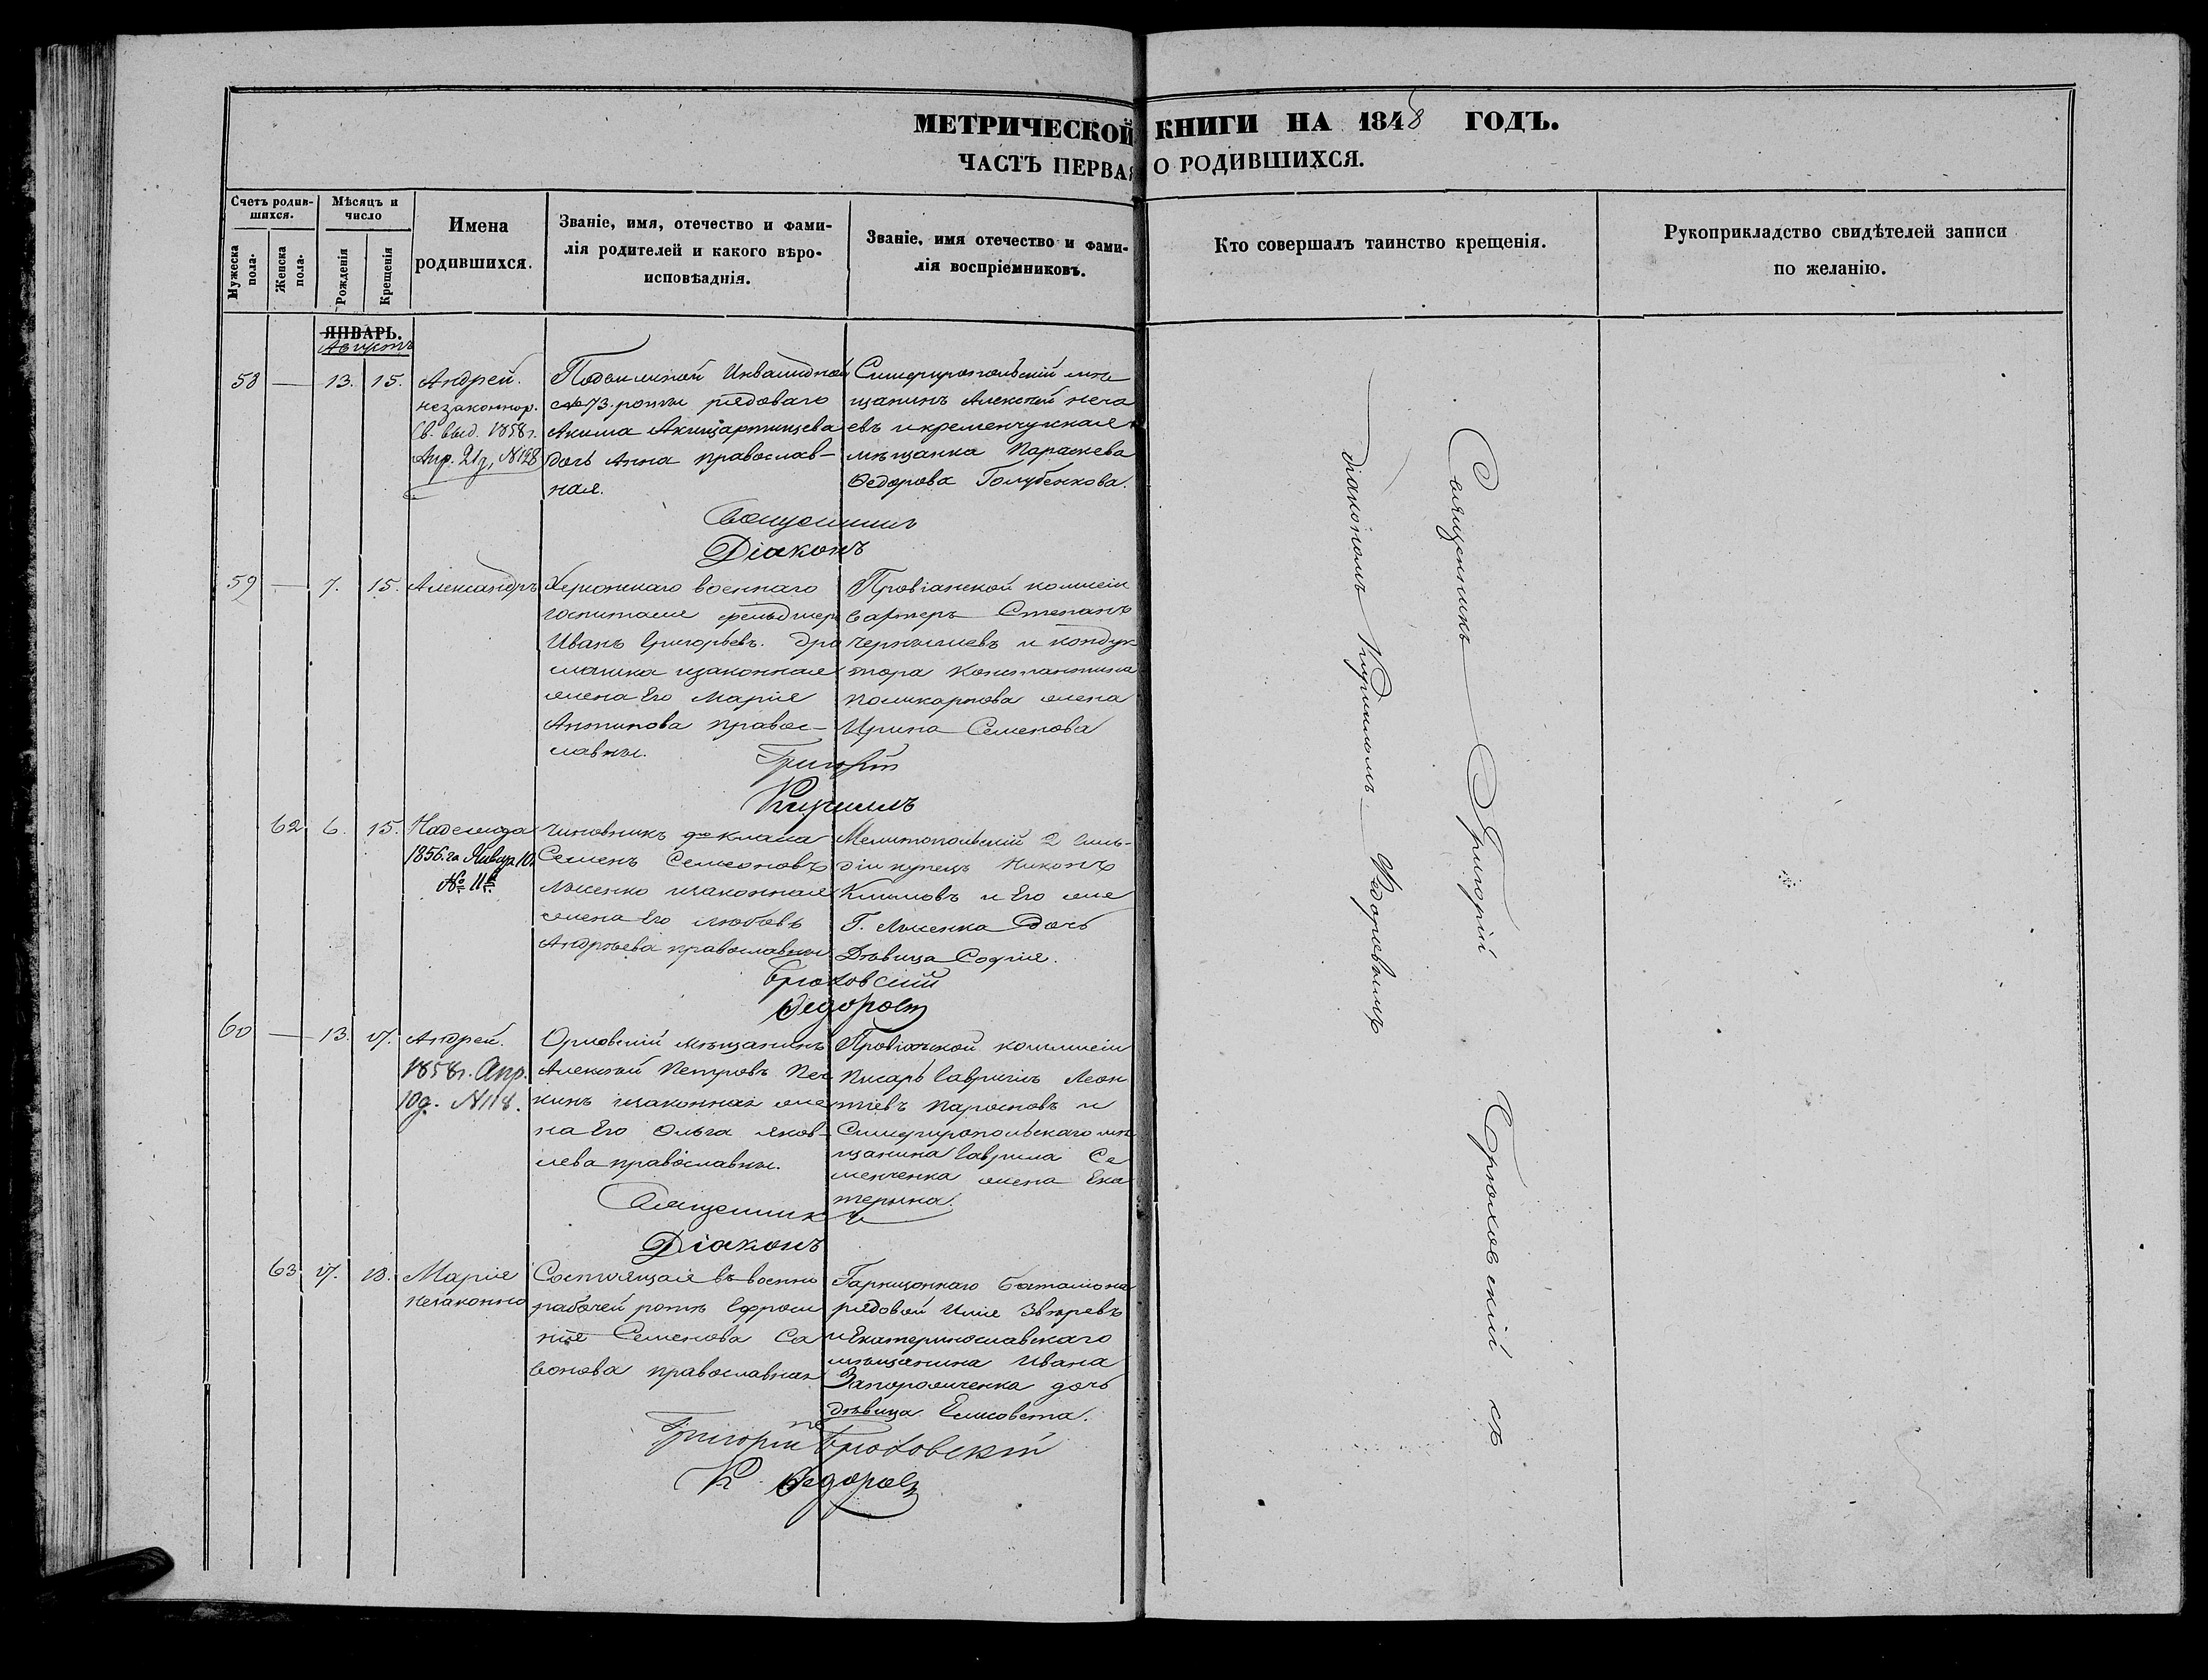 МЕТРИЧЕСКОЙ КНИГИ НА 1848 ГОДЪ.
ЧАСТЬ ПЕРВАЯ О РОДИВШИХСЯ.
Счетъ родив-
шихся.
Мужеска
пола.
Женска
пола.
Мѣсяцъ и
число
Рожденія
Крещенія
Имена
родившихся.
Званіе, имя, отечество и фами-
лія родителей и какого вѣро-
исповѣаднія.
Званіе, имя отечество и фами-
лія воспріемниковъ.
Кто совершалъ таинство крещенія.
Рукоприкладство свидѣтелей записи
по желанію.
ЯНВАРЬ.
Августъ
58 — 13. 15.
Андрей.
незаконнор.
Св. выд. 1858 г.
Апр. 21 д, N128
Подвижной Инвалидной
№ 73. роты рядоваго
Акима
дочь Анна православ-
ная.
Симферопольскій мѣ
щанинъ Алексѣй Неча
евъ и кременчугская
мѣщанка Параскева
Ѳедорова Голубенкова.
Священникъ
Діаконъ
59 — 7. 15.
Александръ
Херсонскаго военнаго
госпиталя фельдшеръ
Иванъ Григорьевъ. Дра
машка изаконная
жена Его Марія
Антипова правос-
лавны.
Провіанской комисіи
вахтеръ Степанъ
Чернышевъ и кондук
тора Константина
Поликарпова жена
Ирина Семенова
Григорій
Кириллъ
62 6. 15.
Надежда
1856. го Январ. 10.
№ 11й
Чиновникъ 9го класа
Семенъ Семеоновъ
Лысенко изаконная
жена Его Любовь
Андрѣева православны
Мелитопольскій 2 гиль-
діи купецъ Никонъ
Климовъ и Его же
Г. Лысенка Дочь
Дѣвица Софія.
Брюховскій
Ѳедоровъ
60 — 13. 17.
Андрей.
1858 г. Апр.
10 д. N118.
Орловскій мѣщанинъ
Алексѣй Петровъ
изаконная же
на Его Ольга Яков-
лева православны.
Провіанской коммисіи
писарь Гаврiилъ Леон
тіевъ и
Симферопольскаго мѣ
щанина Гаврила Се
менченка жена Ека
терина.
Священникъ
Діаконъ
63 17. 18.
Марія
незаконно
Состоящая въ военно
рабочей ротѣ Ефроси
нія Семенова Са
вонова православная
Гарнизоннаго баталіона
рядовой Илія Звѣревъ
и Екатеринославскаго
мѣщанина Ивана
Запорожченка дочь
дѣвица Елисовета.
Григорій Брюховскій
К. Ѳедоровъ
Священникъ Григорій Брюховскій съ
діакономъ Кирилломъ Ѳедоровымъ